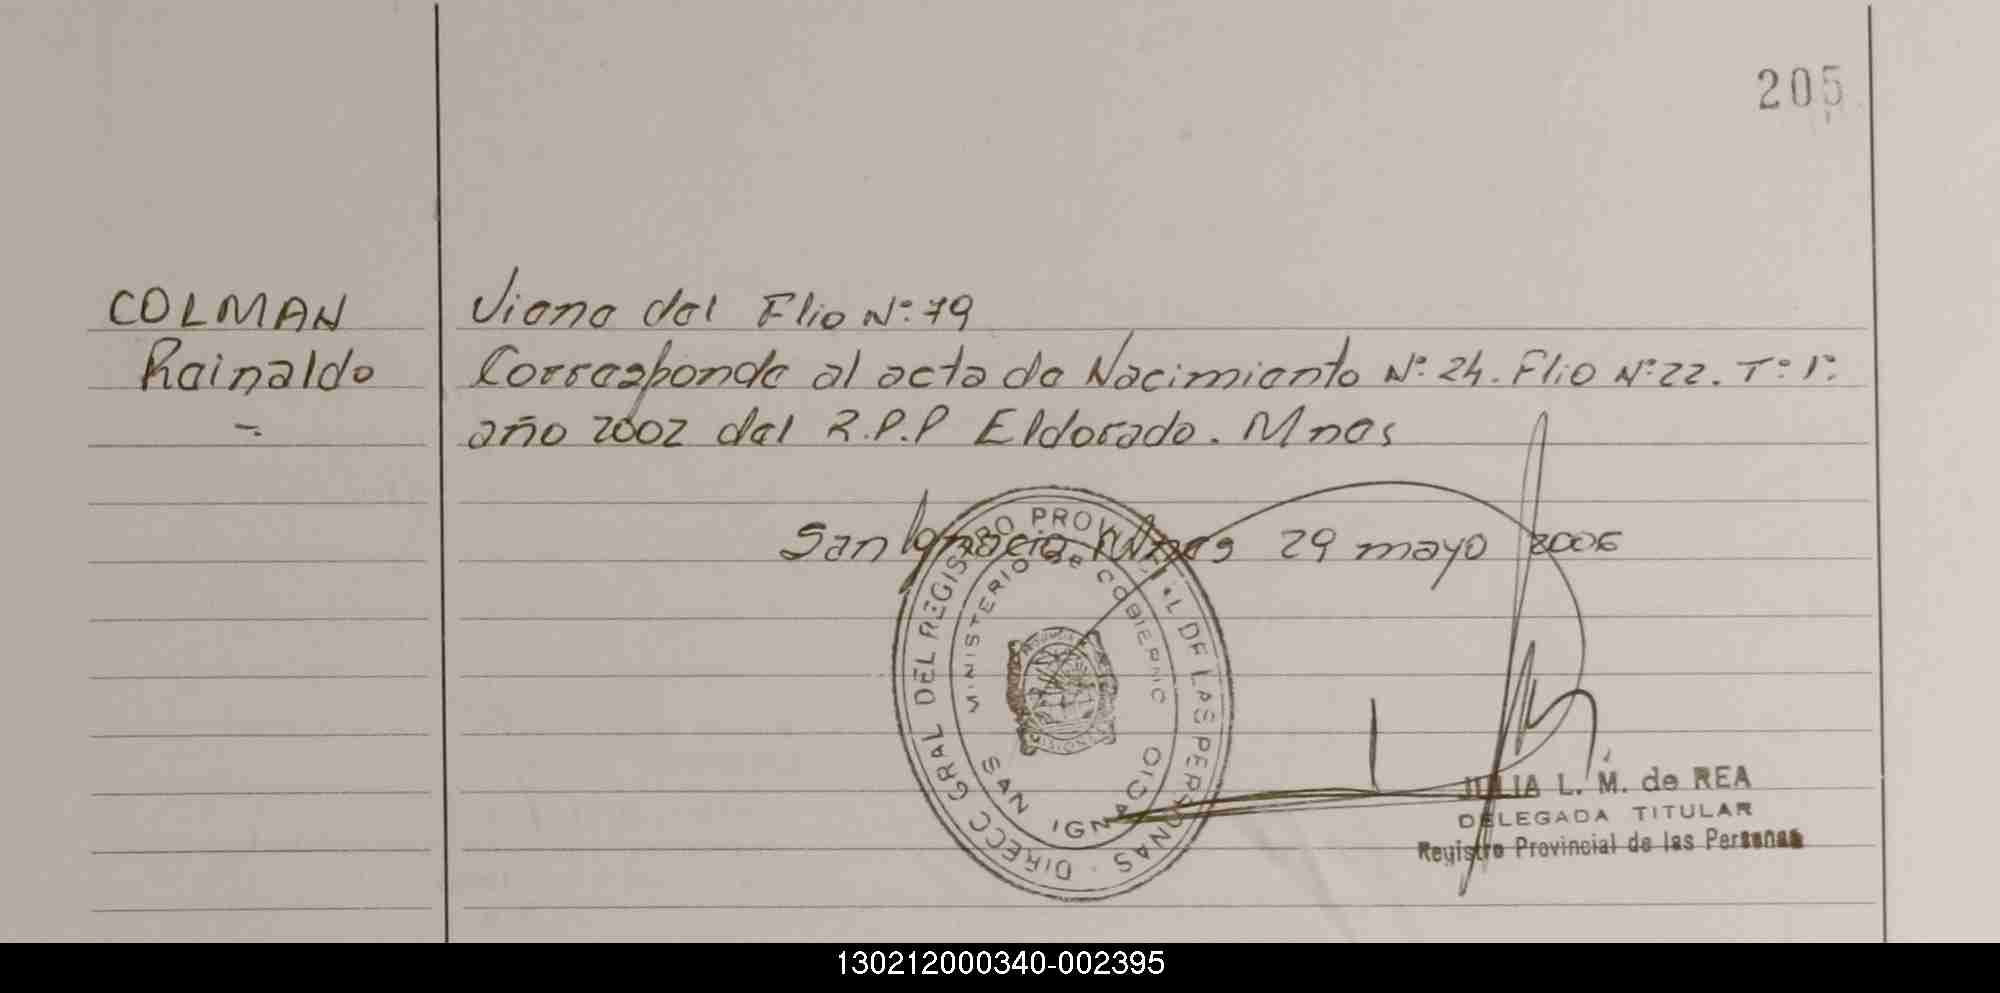 205
COLMAN
Rainaldo
Viene del Flio Nº: 79
Corresponde al acta de Nacimiento Nº: 24. Flio Nº: 22. Tº: 1º:
año 2002 del R.P.P Eldorado. Mnes
San Ignacio Mnes 29 mayo 2006
DIRECC GRAL DEL REGISTRO PROVINCIAL DE LAS PERSONAS
MINISTERIO de GOBIERNO
MISIONES
SAN IGNACIO
JULIA L. M. de REA
DELEGADA TITULAR
Registro Provincial de las Personas
130212000340-002395